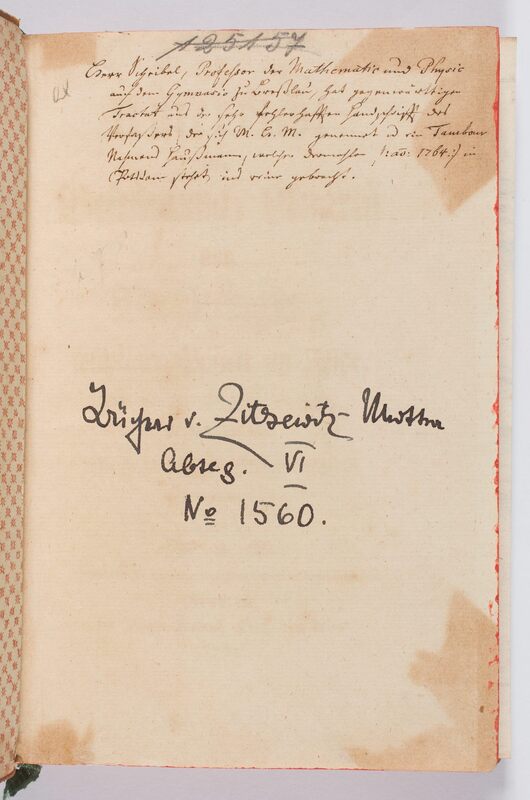 125157
Herr Scheibel, Professor der Mathematic und Physic
auf dem Gymnasio zu Breßlau, hat gegenwärtigen
Tractat aus der sehr fehlerhafften Handschrifft des
Verfaßers der sich M. C. M. genennet ein Tambour
Nahmens Haußmann, welcher dermahlen /: ao: 1764 :/ in
Potsdam stehet ins reine gebracht.
Bücher v. Zitzewitz
Abteg. VI
No 1560.